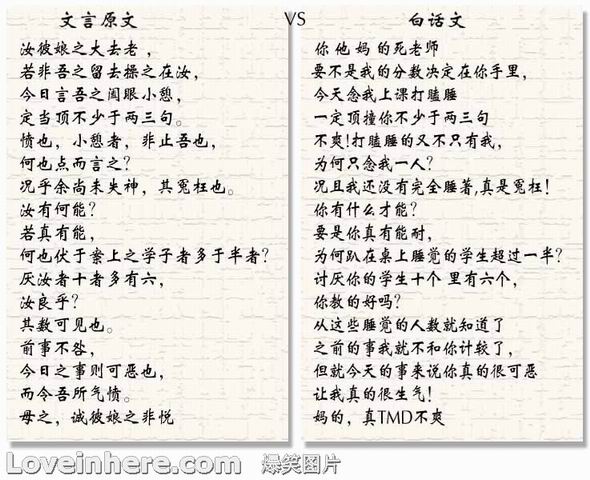 文言原文
VS
白话文
汝彼娘之大去老，
若非吾之留去操之在汝，
今日言吾之阖眼小憩，
定当顶不少于两三句。
愤也，小憩者，非止吾也，
何也点而言之？
况乎余尚未失神，其冤枉也。
汝有何能？
若真有能，
何也伏于案上之学子者多于半者？
厌汝者十者多有六，
汝良乎？
其数可见也。
前事不咎，
今日之事则可恶也，
而今吾所气愤。
母之，诚彼娘之非悦
你他妈的死老师
要不是我的分数决定在你手里，
今天念我上课打瞌睡
一定顶撞你不少于两三句
不爽！打瞌睡的又不只有我，
为何只念我一人？
况且我还没有完全睡著，真是冤枉！
你有什么才能？
要是你真有能耐，
为何趴在桌上睡觉的学生超过一半？
讨厌你的学生十个 里有六个，
你教的好吗？
从这些睡觉的人数就知道了
之前的事我就不和你计较了，
但就今天的事来说你真的很可恶
让我真的很生气！
妈的，真TMD不爽
Loveinhere.com 爆笑图片